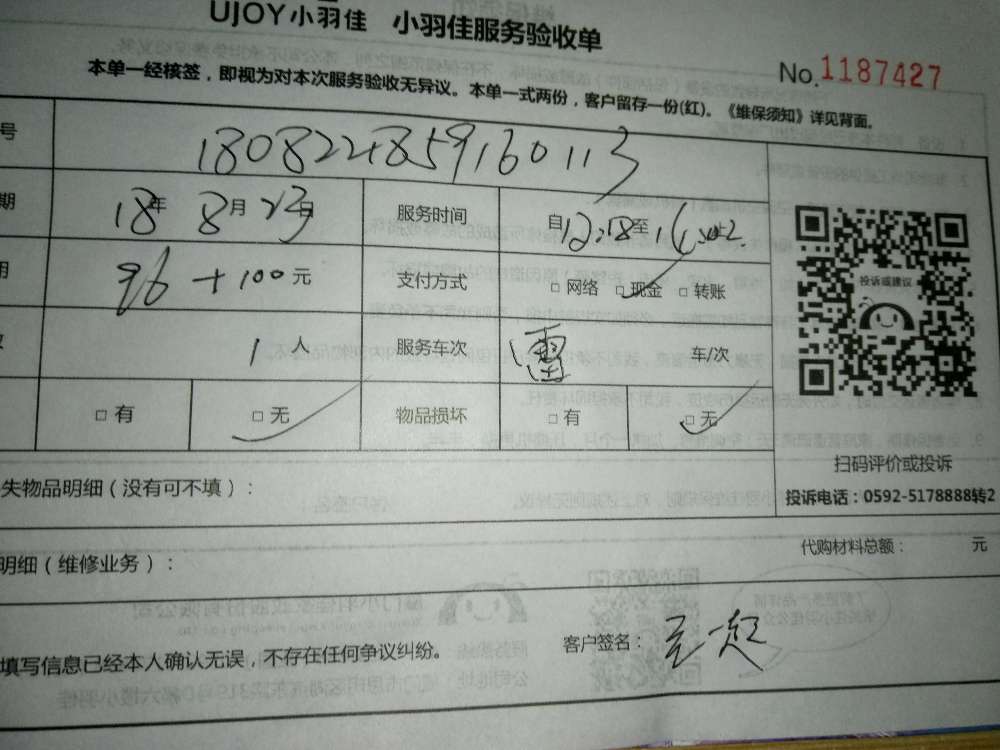 UJOY小羽佳 小羽佳服务验收单
No.1187427
本单一经核签，即视为对本次服务验收无异议。本单一式两份，客户留存一份(红)。《维保须知》详见背面。
号 180822485916 0113
期 18年 8月23日 服务时间 自12:18至
用 96+100元 支付方式 □网络 □现金 □转账
投诉或建议
1人 服务车次 雷 车/次
□有 □无 物品损坏 □有 □无
扫码评价或投诉
失物品明细（没有可不填）：
投诉电话：0592-5178888转2
明细（维修业务）：
代购材料总额： 元
填写信息已经本人确认无误，不存在任何争议纠纷。
客户签名：